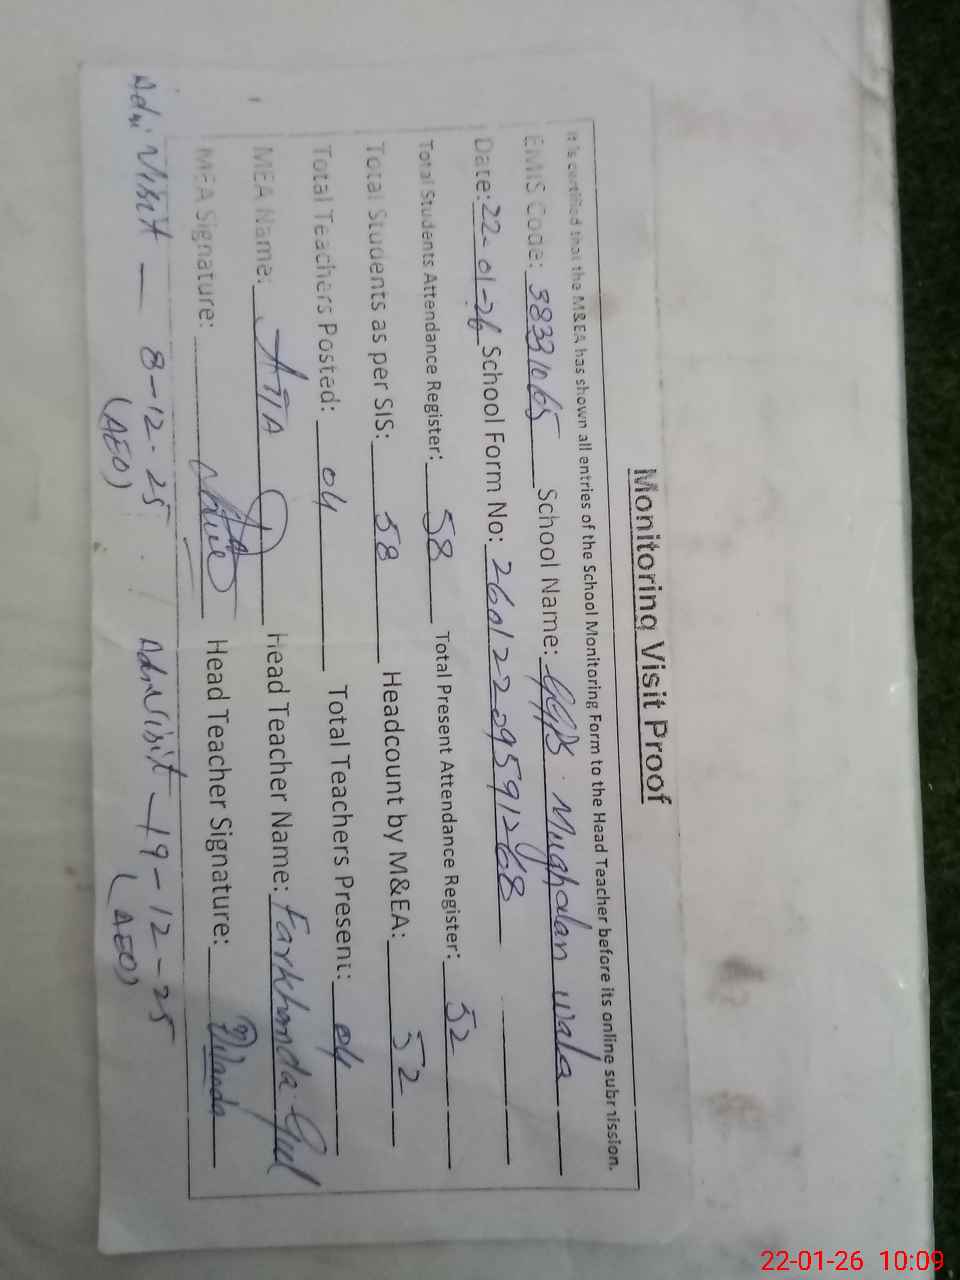 Monitoring Visit Proof
It is certified that the M&EA has shown all entries of the School Monitoring Form to the Head Teacher before its online submission.
EMIS Code: 38331065 School Name: GGPS. Mughalan wala
Date: 22-01-26 School Form No: 26012209591268
Total Students Attendance Register: 58 Total Present Attendance Register: 52
Total Students as per SIS: 58 Headcount by M&EA: 52
Total Teachers Posted: 04 Total Teachers Present: 04
MEA Name: Head Teacher Name: Farkhanda Gul
MEA Signature: Head Teacher Signature:
Visit — 8-12-25 Visit — 19-12-25
(AEO) (AEO)
22-01-26 10:09